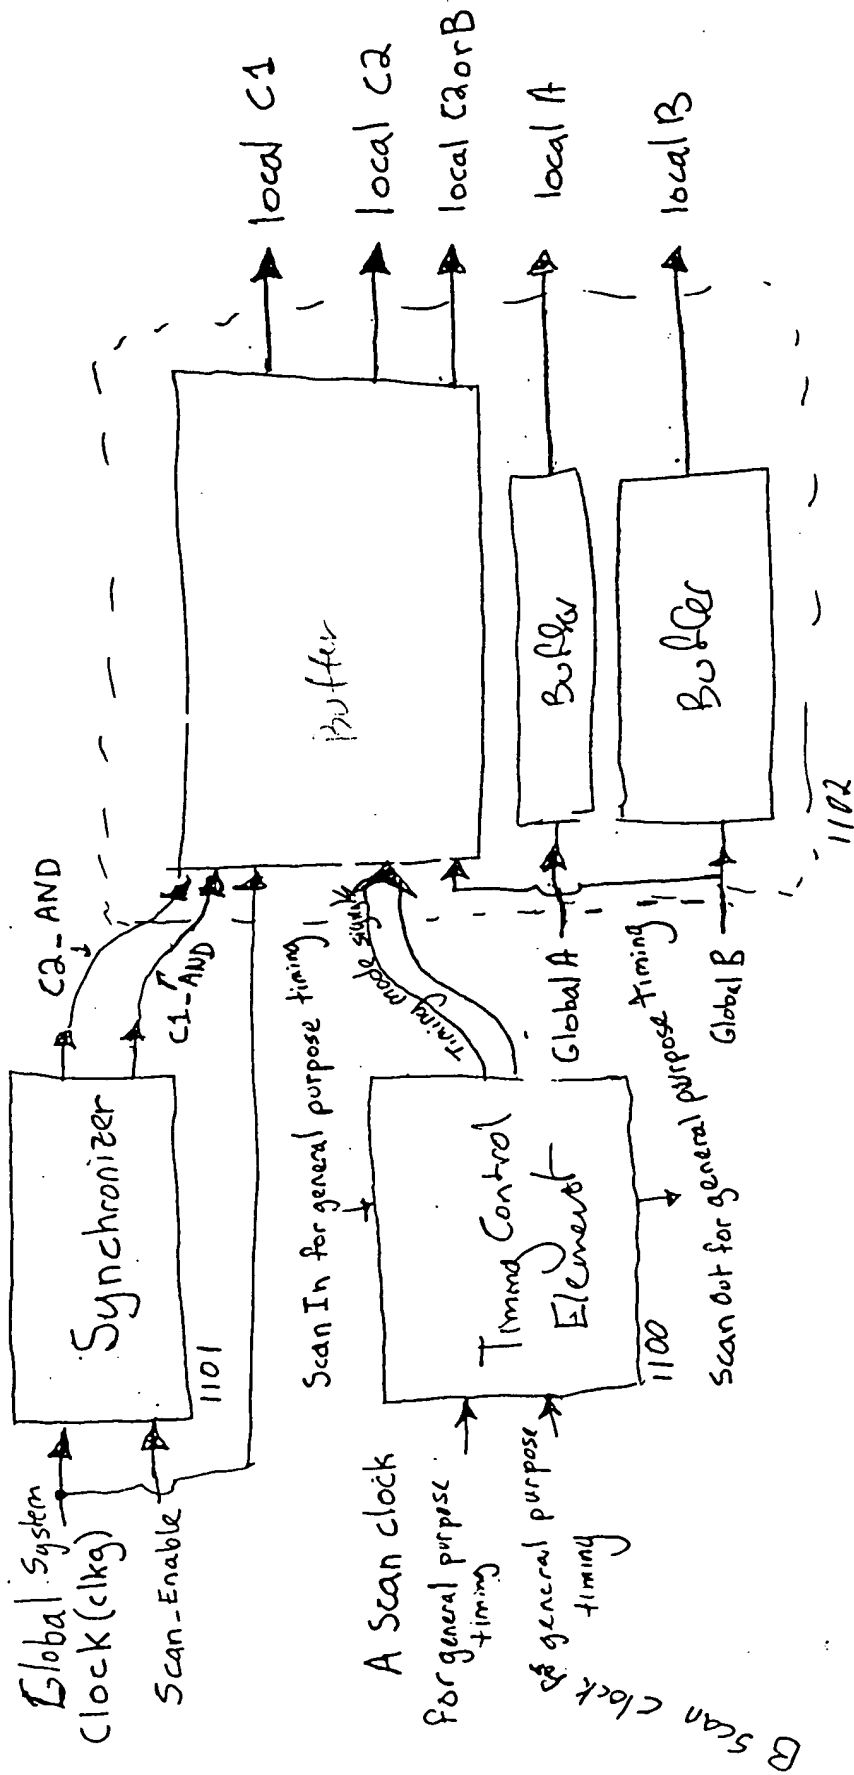 Global System
Clock (clkg)
Scan_Enable
Synchronizer
1101
C2_AND
C1_AND
A Scan clock
for general purpose
timing
B Scan clock for general purpose
timing
Scan In for general purpose timing
Timing Control
Element
1100
Scan Out for general purpose timing
Timing mode signals
Global A
Global B
Buffer
Buffer
Buffer
1102
local C1
local C2
local C2orB
local A
local B